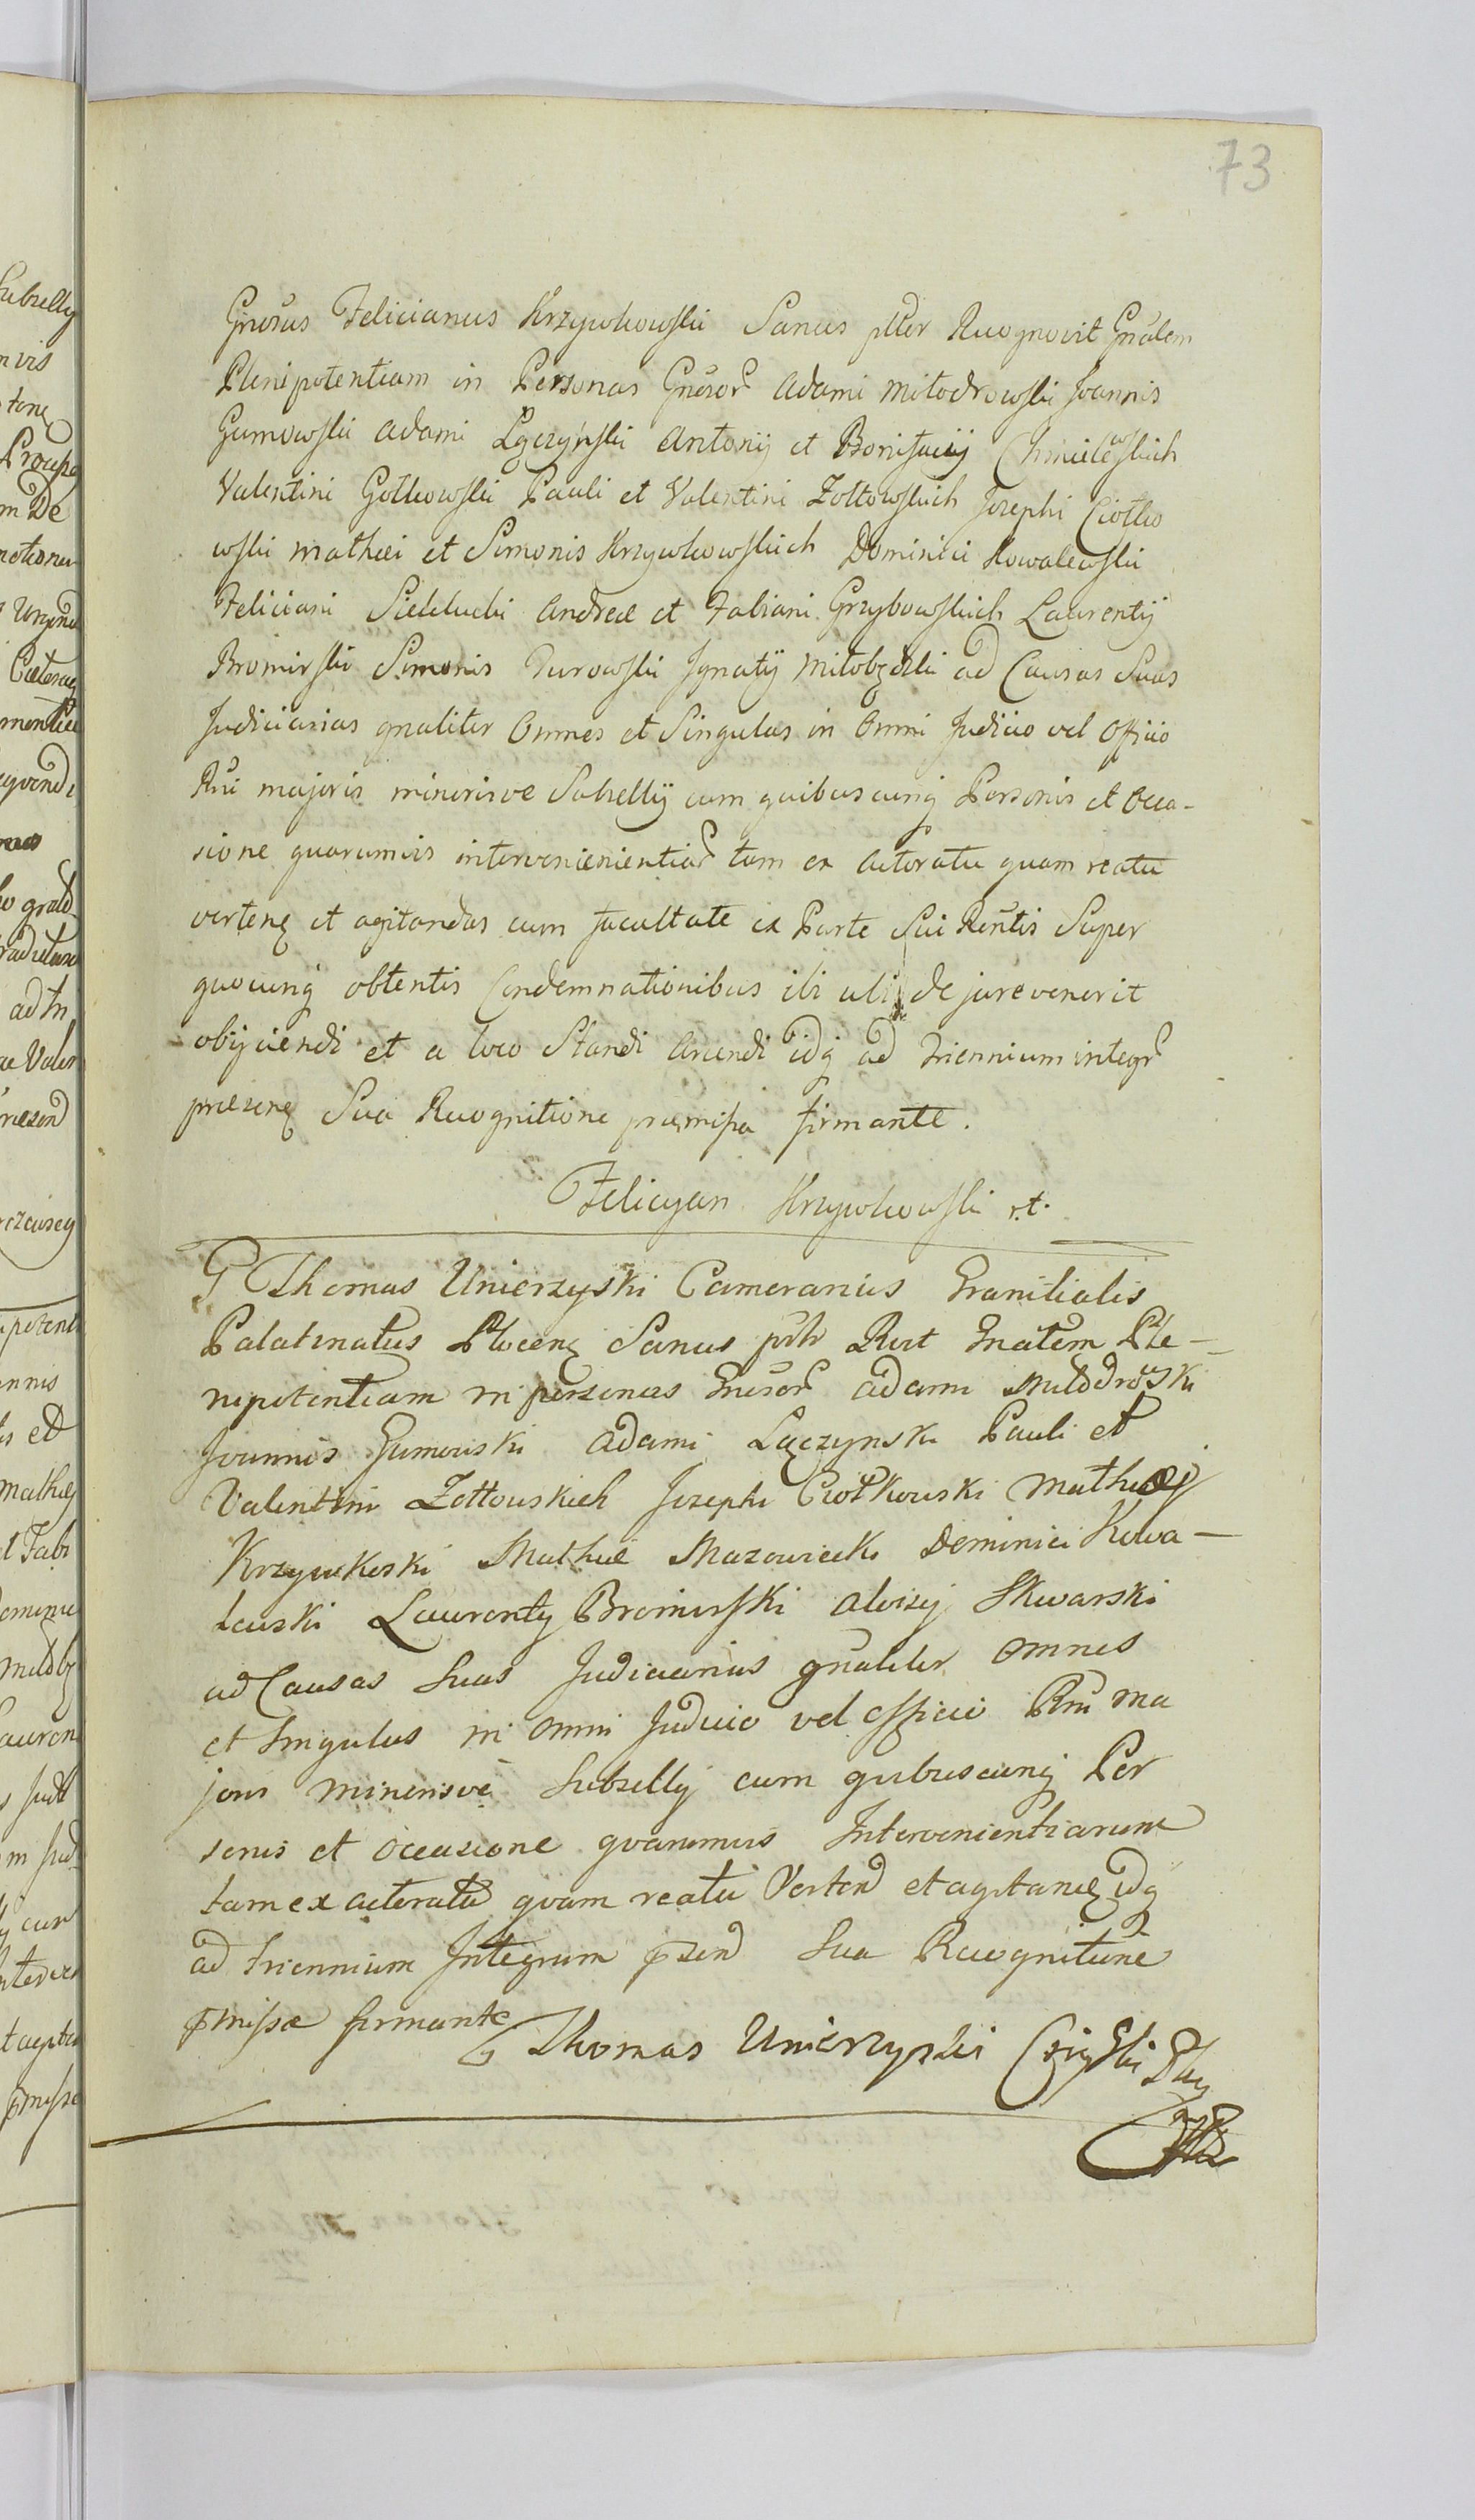 73
Gnosus Felicianus Krzywkowski Sanus plter Recognovit Gnalem
Plenipotentiam in Personas Gnosor Adami Miłodrowski Joannis
Gumowski Adami Łączyński Antonij et Bonifacij Chmielewskich
Valentini Gołkowski Pauli et Valentini Zołtowskich Josephi Ciołko
wski Mathæi et Simonis Krzywkowskich Dominici Kowalewski
Feliciani Sieklucki Andreæ et Fabiani Grzybowskich Laurentij
Bromirski Simonis Turowski Ignatij Miłobędzki ad Causas Suas
Judiciarias gnaliter Omnes et Singulas in Omni Judicio vel Officio
Rni majoris minorisve Subsellij cum quibuscunq Personis et Occa-
sione quarumvis intervenienientiar tam ex Actoratu quam reatu
verten et agitandas cum facultate ex Parte Sui Rentis Super
quocunq obtentis Condemnationibus ibi ubi de jure venerit
obijciendi et a loco Standi Arcendi idq ad Triennium integr
præsen Sua Recognitione præmissa firmante.
Felicyan Krzywkowski
G Thomas Unierzyski Camerarius Granitialis
Palatinatus Plocen Sanus Rcit Gnalem Ple-
nipotentiam in personas Gnosor Adami Miłodrowski
Joannis Gumowski Adami Łączynski Pauli et
Valentini Zołtowskich Josephi Ciołkowski Mathæi
Krzywkoski Mathiæ Mazowiecki Dominici Kowa-
lewski Laurenty Bromirski Aloisij Skwarski
ad Causas Suas Judiciarias gnaliter Omnes
et Singulas in Omni Judicio vel Officio Rni ma
joris minorisve Subsellij cum quibuscunq Per
sonis et Occasione quarumvis Intervenientiarum
tam ex Actoratu quam reatu Verten et agitan idq
ad Triennium Integrum psen Sua Recognitione
pmissa firmante
Thomas Unierzyski